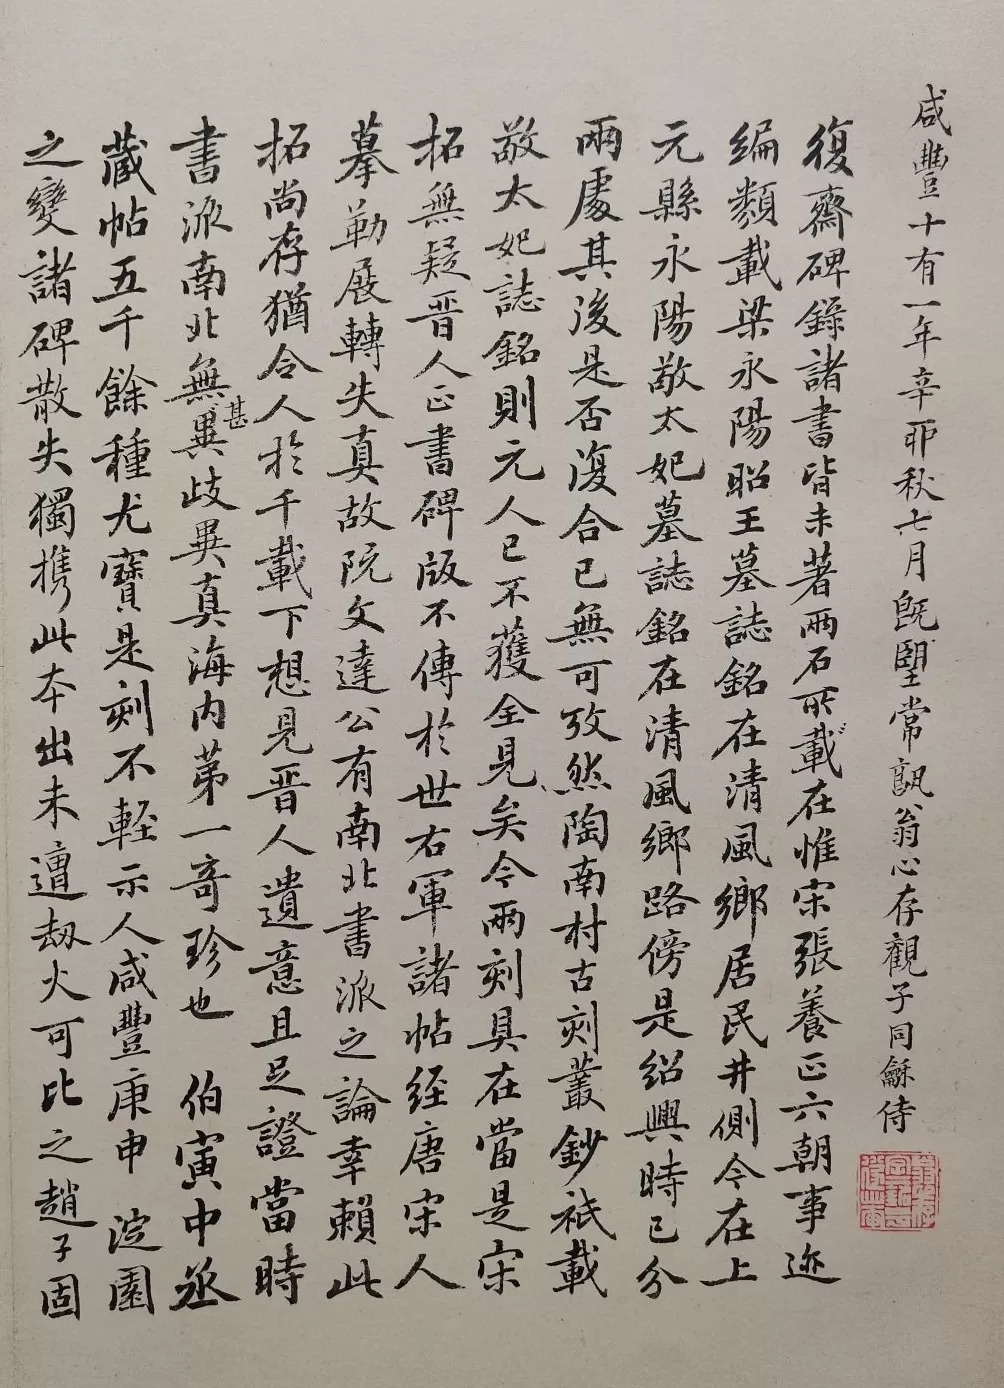 咸豐十有一年辛酉秋七月既望常熟翁心存觀子同龢侍
復齋碑錄諸書皆未著兩石所載在惟宋張養正六朝事迹
編類載梁永陽昭王墓誌銘在清風鄉居民井側今在上
元縣永陽敬太妃墓誌銘在清風鄉路傍是紹興時已分
兩處其後是否復合已無可攷然陶南村古刻叢鈔祇載
敬太妃誌銘則元人已不獲全見矣今兩刻具在當是宋
拓無疑晋人正書碑版不傳於世右軍諸帖經唐宋人
摹勒展轉失真故阮文達公有南北書派之論幸賴此
拓尚存猶令人於千載下想見晋人遺意且足證當時
書派南北無甚異歧異真海内苐一奇珍也 伯寅中丞
藏帖五千餘種尤寶是刻不輕示人咸豐庚申 淀園
之變諸碑散失獨携此本出未遭劫火可比之趙子固